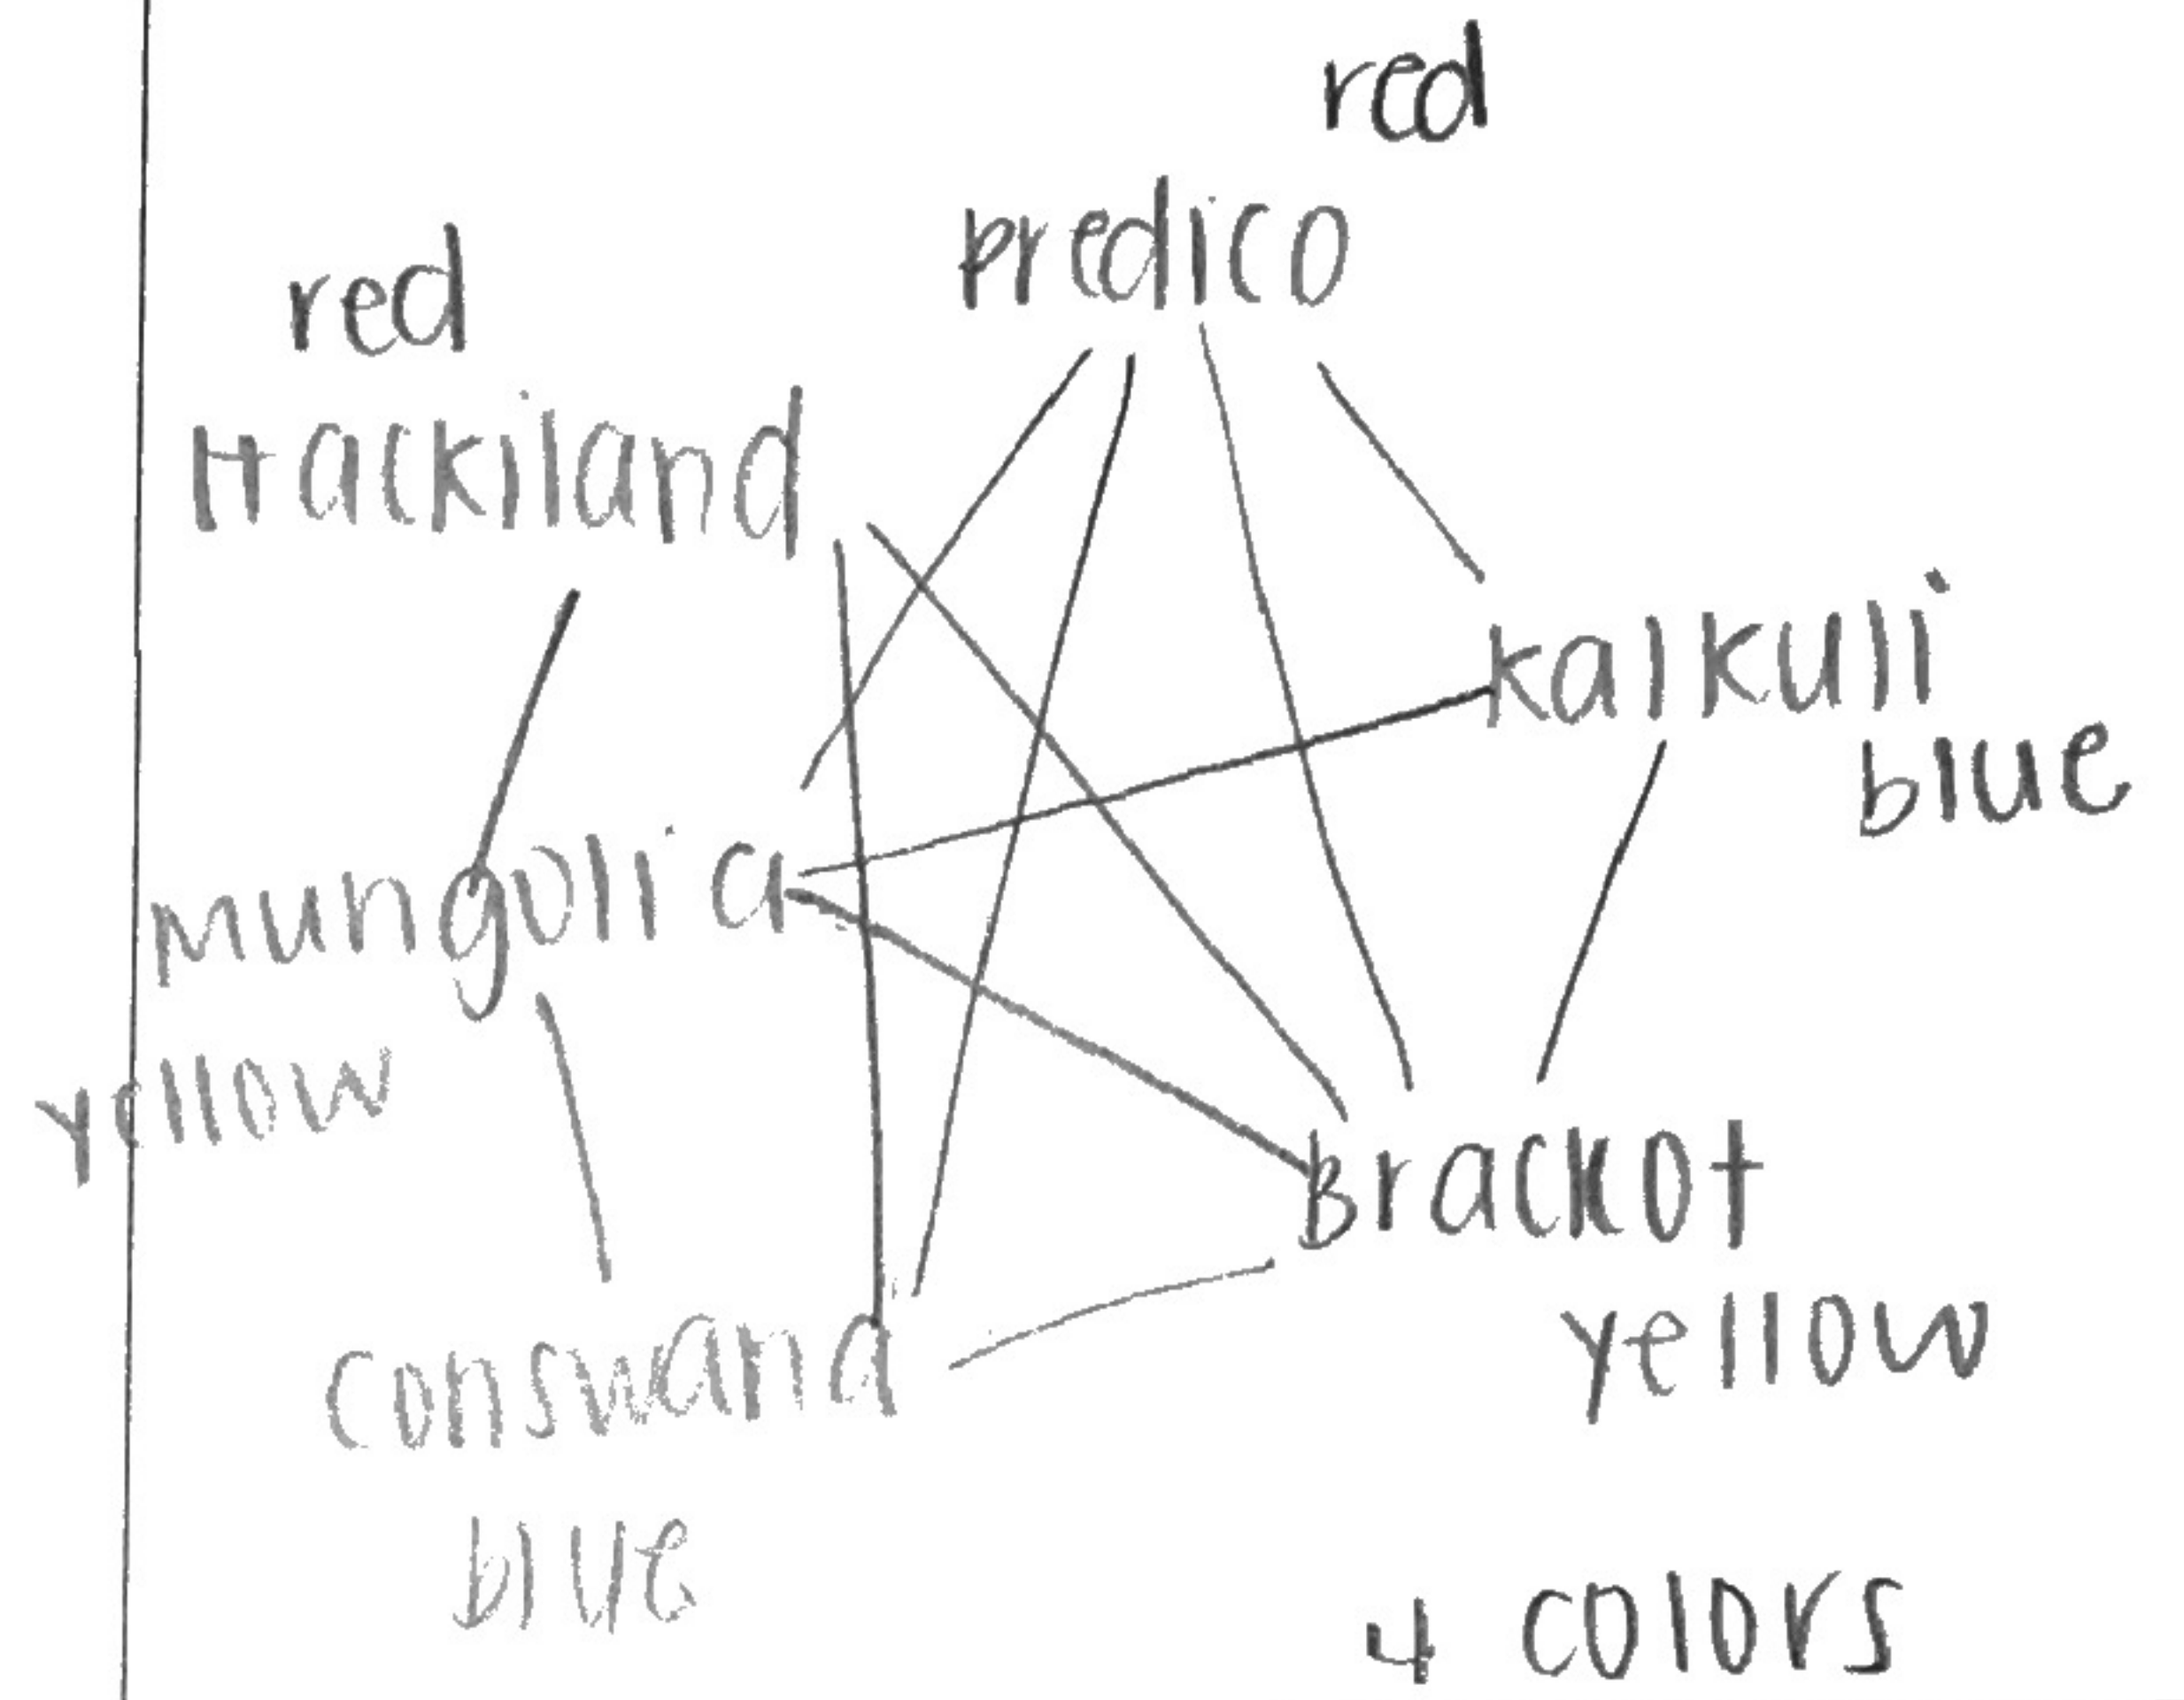 red
predico
red
Hackiland
kalkuli
blue
mungolia
yellow
Brackot
yellow
conswana
blue
4 colors